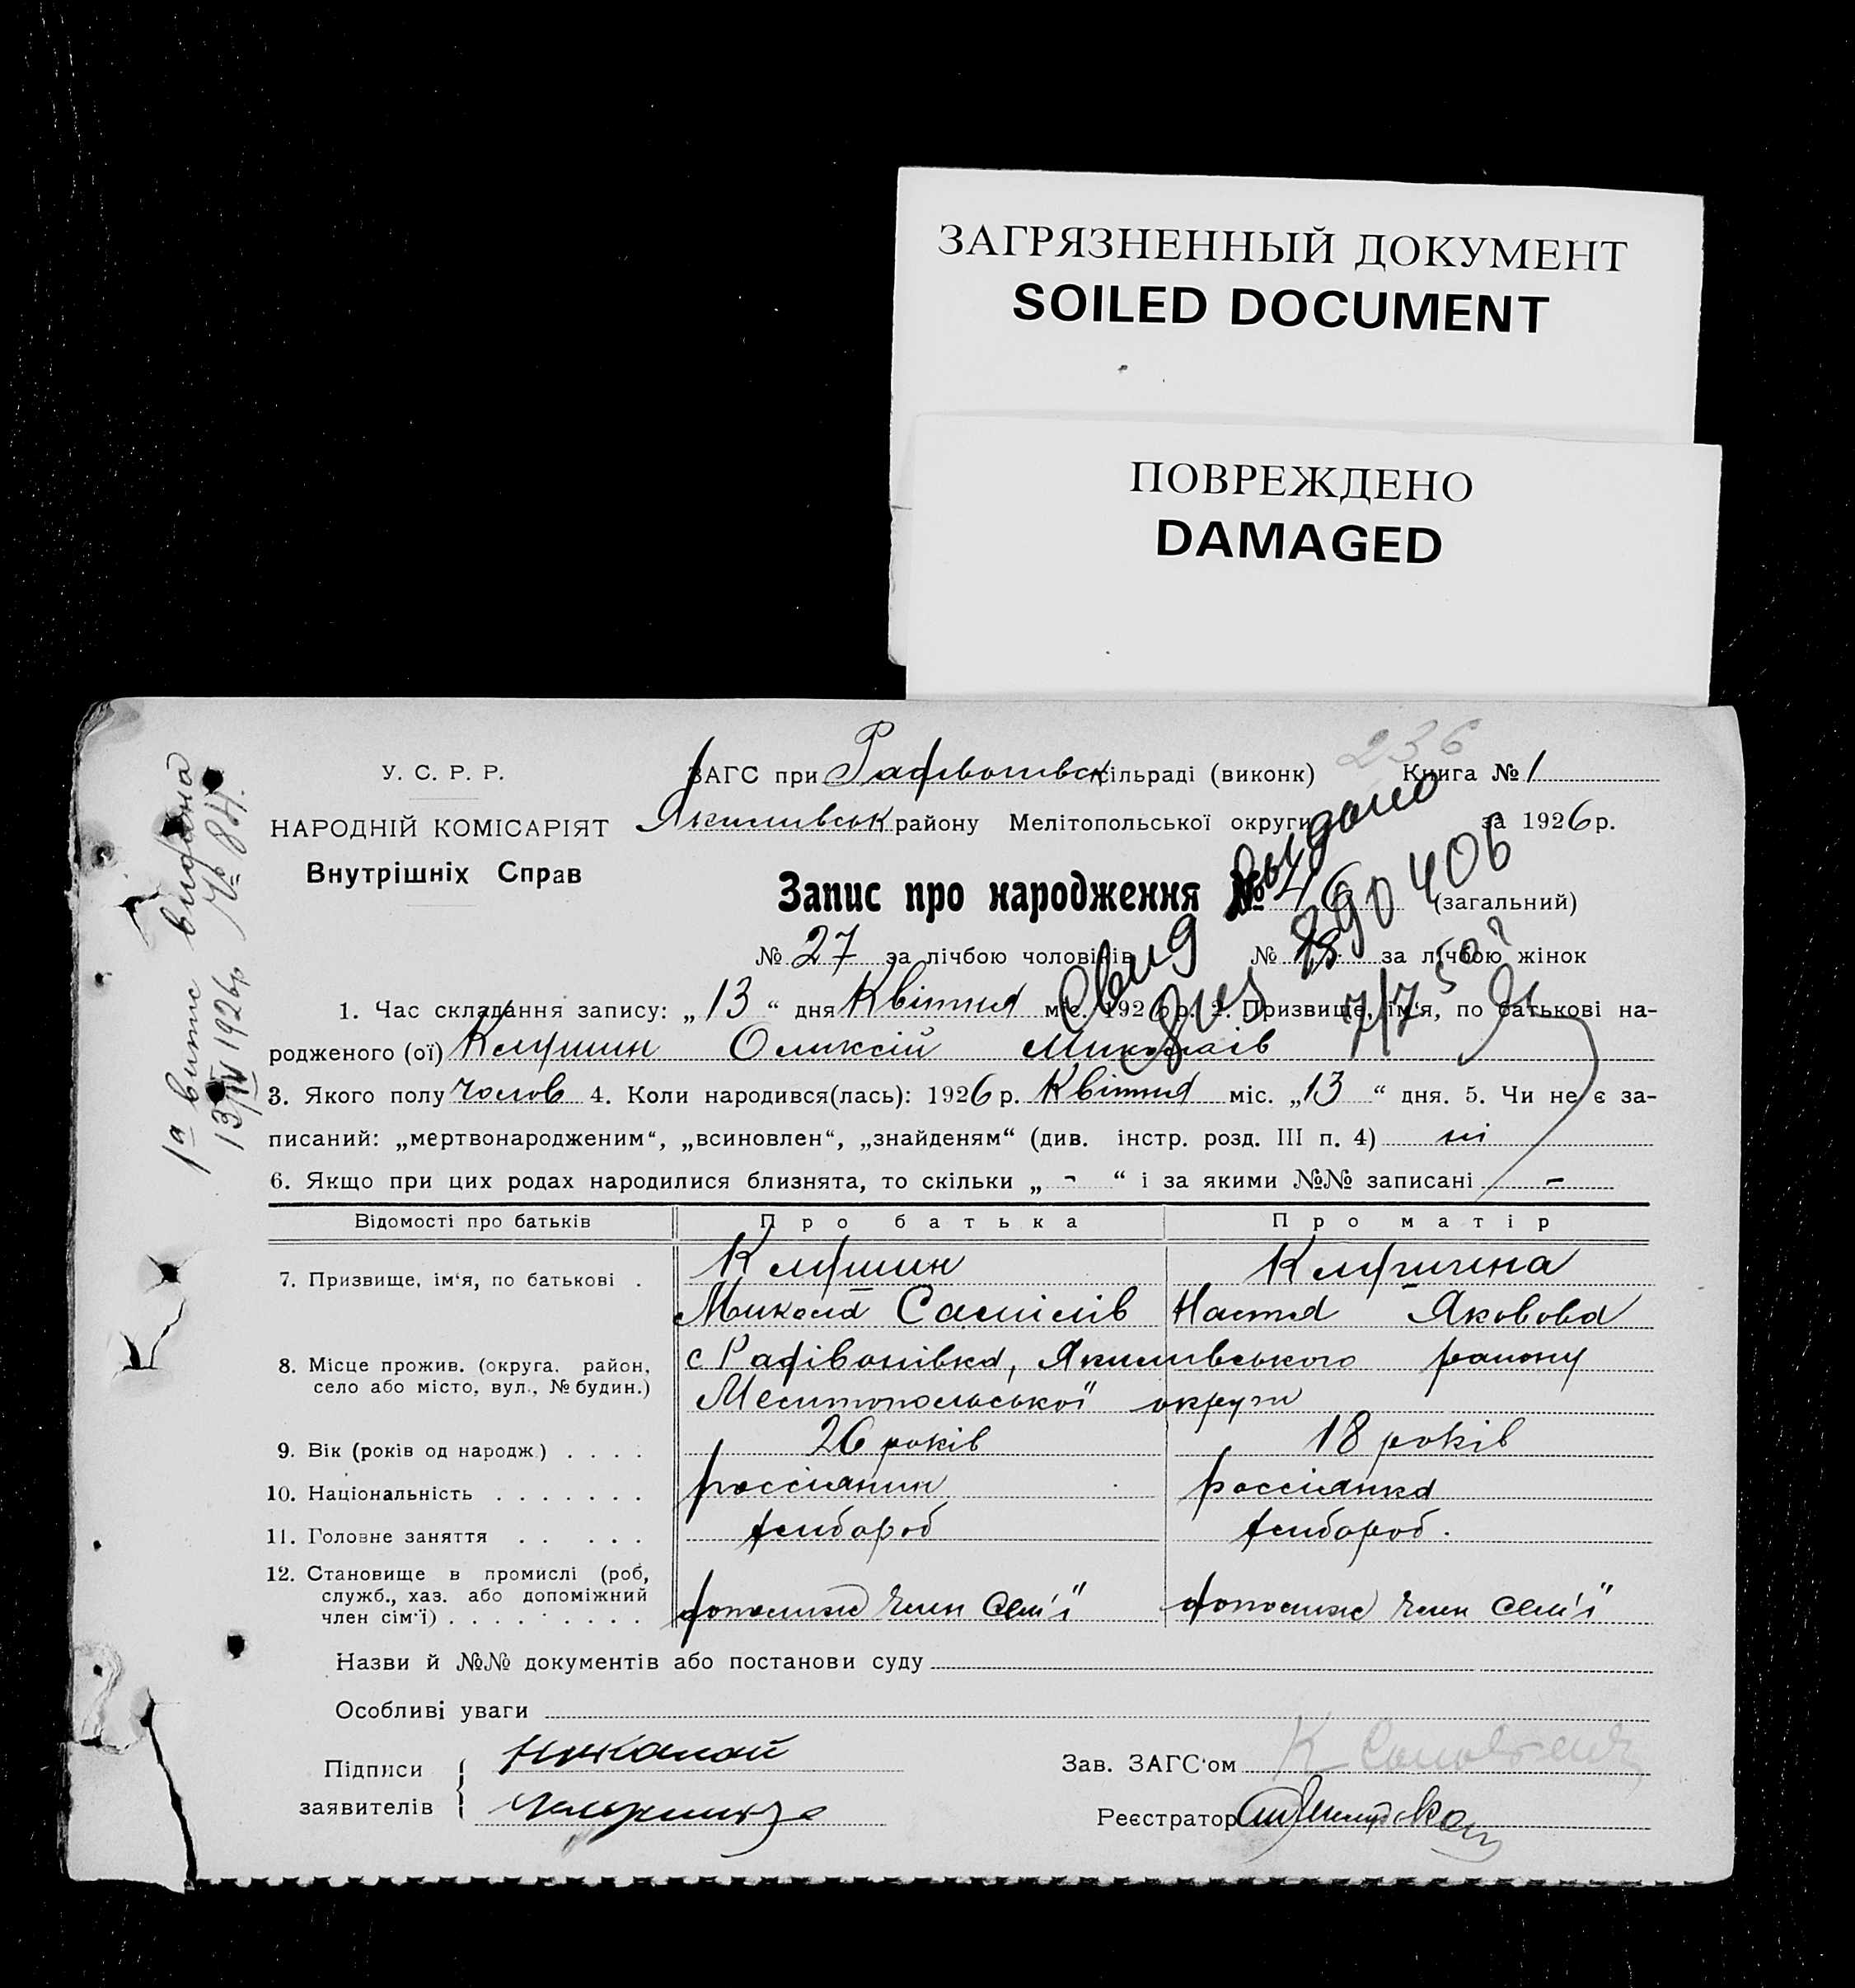 ЗАГРЯЗНЕННЫЙ ДОКУМЕНТ
SOILED DOCUMENT
ПОВРЕЖДЕНО
DAMAGED
236
У. С. Р. Р.
ЗАГС при Радівонівськ сільраді (виконк) Книга № 1
НАРОДНІЙ КОМІСАРІЯТ
Якимивськ району Мелітопольської округи за 1926 р.
Внутрішніх Справ
Запис про народження № 46 (загальний)
№ 27 за лічбою чоловіків № за лічбою жінок
выдано
свид
890406
7/7 50 г
1ª випис видана
13/IV 1926р № 84.
1. Час складання запису: „13“ дня Квітня міс. 1926 р. 2. Призвище, ім‘я, по батькові на-
родженого (ої) Клушин Оликсій Миколаів
3. Якого полу чолов 4. Коли народився(лась): 1926 р. Квітня міс. „13“ дня. 5. Чи не є за-
писаний: „мертвонародженим“, „всиновлен“, „знайденям“ (див. інстр. розд. III п. 4) ні
6. Якщо при цих родах народилися близнята, то скільки „ - “ і за якими №№ записані -
Відомості про батьків Про батька Про матір
7. Призвище, ім‘я, по батькові . Клушин Клушина
Микола Самілів Настя Яковова
8. Місце прожив. (округа, район, село або місто, вул., № будин.) с Радівонівка, Якимивського району
Мелитопольської округи
9. Вік (років од народж.) . . . . 26 років 18 років
10. Національність . . . . . . . россіянин россіянка
11. Головне заняття . . . . . хлибороб хлибороб.
12. Становище в промислі (роб,
служб., хаз. або допоміжний
член сім‘ї) . . . . . . . . . допомижн член семʼї допомижн член семʼї
Назви й №№ документів або постанови суду
Особливі уваги
Підписи Николай
заявителів
Зав. ЗАГС‘ом
Реєстратор